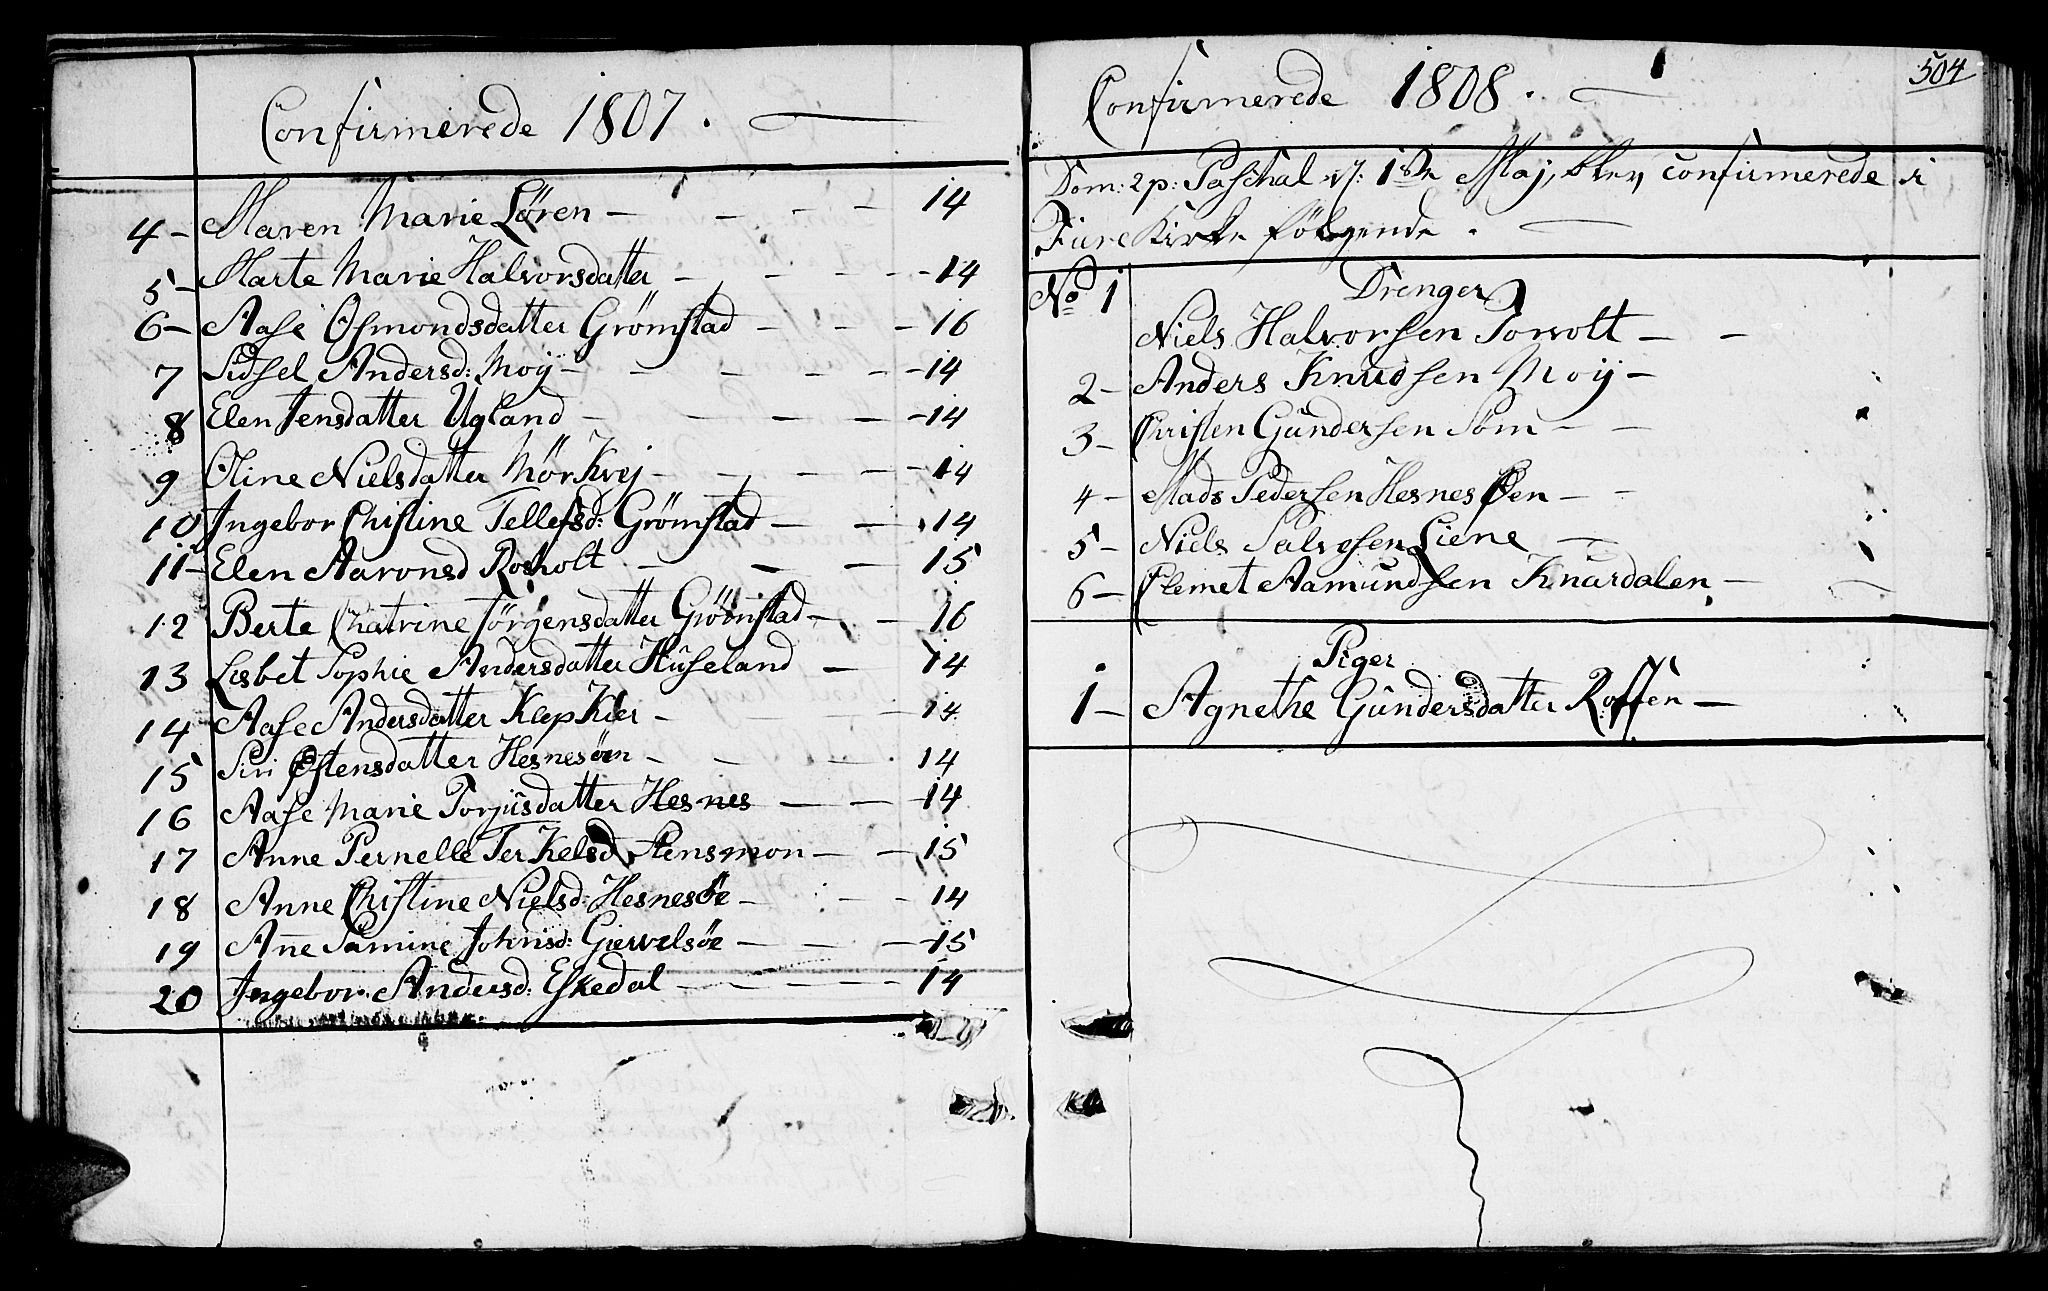 Confirmerede 1807.
4 - Maren Marie Løren - 14
5 - Marte Marie Halvorsdatter - 14
6 - Aase Osmondsdatter Grömstad - 16
7 Sidsel Andersd: Moÿ - 14
8 Elen Jensdatter Ugland - 14
9 Oline Nielsdatter MörKvej - 14
10 Ingebor Christine Tellefsd: Grömstad - 14
11 - Elen Aaronsd Rosholt - 15
12 Berte Chatrine Jörgensdatter Grömstad - 16
13 Lisbet Sophie Andersdatter Huseland - 14
14 Aase Andersdatter KlepKier - 14
15 Siri Østensdatter Hesnesöen - 14
16 Aase Marie Torjusdatter Hesnes - 14
17 Anne Pernelle TerKelsd Stensmon - 15
18 Anne Christine Nielsd: Hesnesöe - 14
19 Añe Samine Johnsd: Giervelsöe - 15
20 Ingebor Andersd: Eskedal - 14
504
Confirmerede 1808.
Dom: 2 p: Paschal v: 1ste Maj, blev confirmerede i
Fiire Kirke følgende.
Drenger
No 1 Niels Halvorsen Torvolt -
2 - Anders Knudsen Moÿ -
3 - Christen Gundersen Søm -
4 - Mads Pedersen Hesnes Øen -
5 - Niels Salvesen Liene -
6 - Clemet Aamundsen Knardalen -
Piger
1 - Agnethe Gundersdatter Roffen -